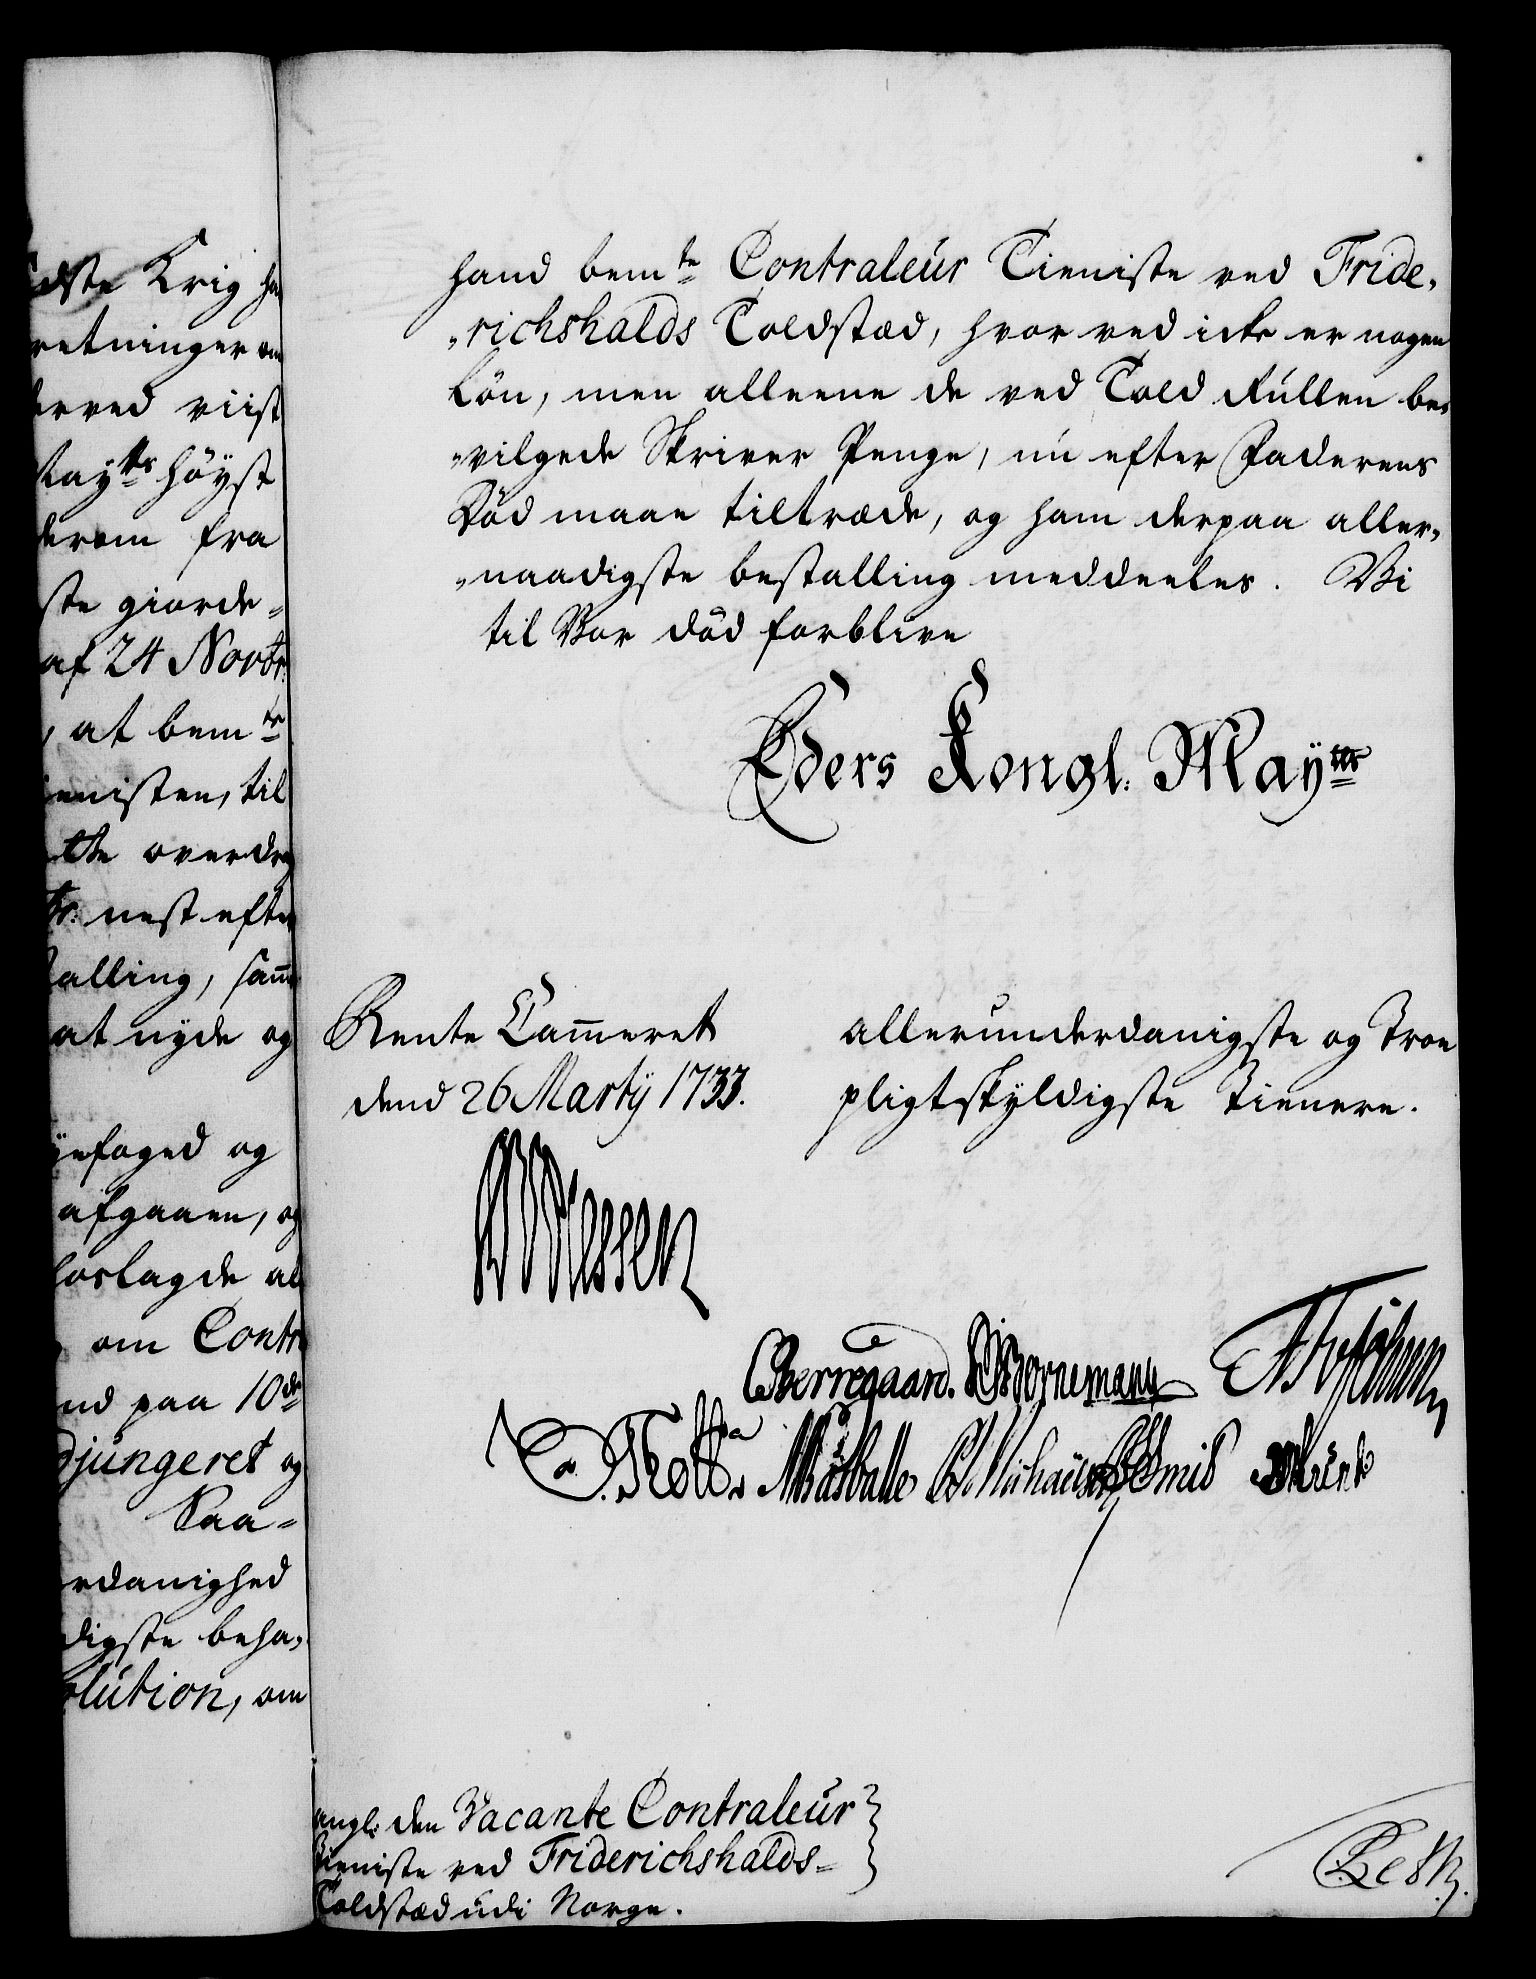 idste Krig ha
retninger om
derved viist
Mayts höyst
derom fra
ste giorde-
af 24 Novbr:
, at bemte
ienisten, til
overdrag
nest efter
talling, samme
at nyde og
yefoged og
afgaaen, og
foreslagde al
om Contr
nd paa 10de
djungeret og
Saa-
rdanighed
digste beha-
olution, om
hand bemte Contraleur Tieniste ved Fride-
-richshalds Toldstæd, hvor ved icke er nogen
Lön, men alleene de ved Told Rullen be-
-vilgede Skriver Penge, nu efter Faderens
Död maae tiltræde, og ham derpaa aller-
-naadigste bestalling meddeeles. Vi
til Vor död forblive
Eders Kongl. Mayts
Rente Cammeret
dend 26 Marty 1733.
allerunderdanigste og Troe
pligtskyldigste Tienere.
Berregaard. Bornemann
angl: den Vacante Contraleur
Tieniste ved Friderichshalds-
Toldstæd udi Norge.